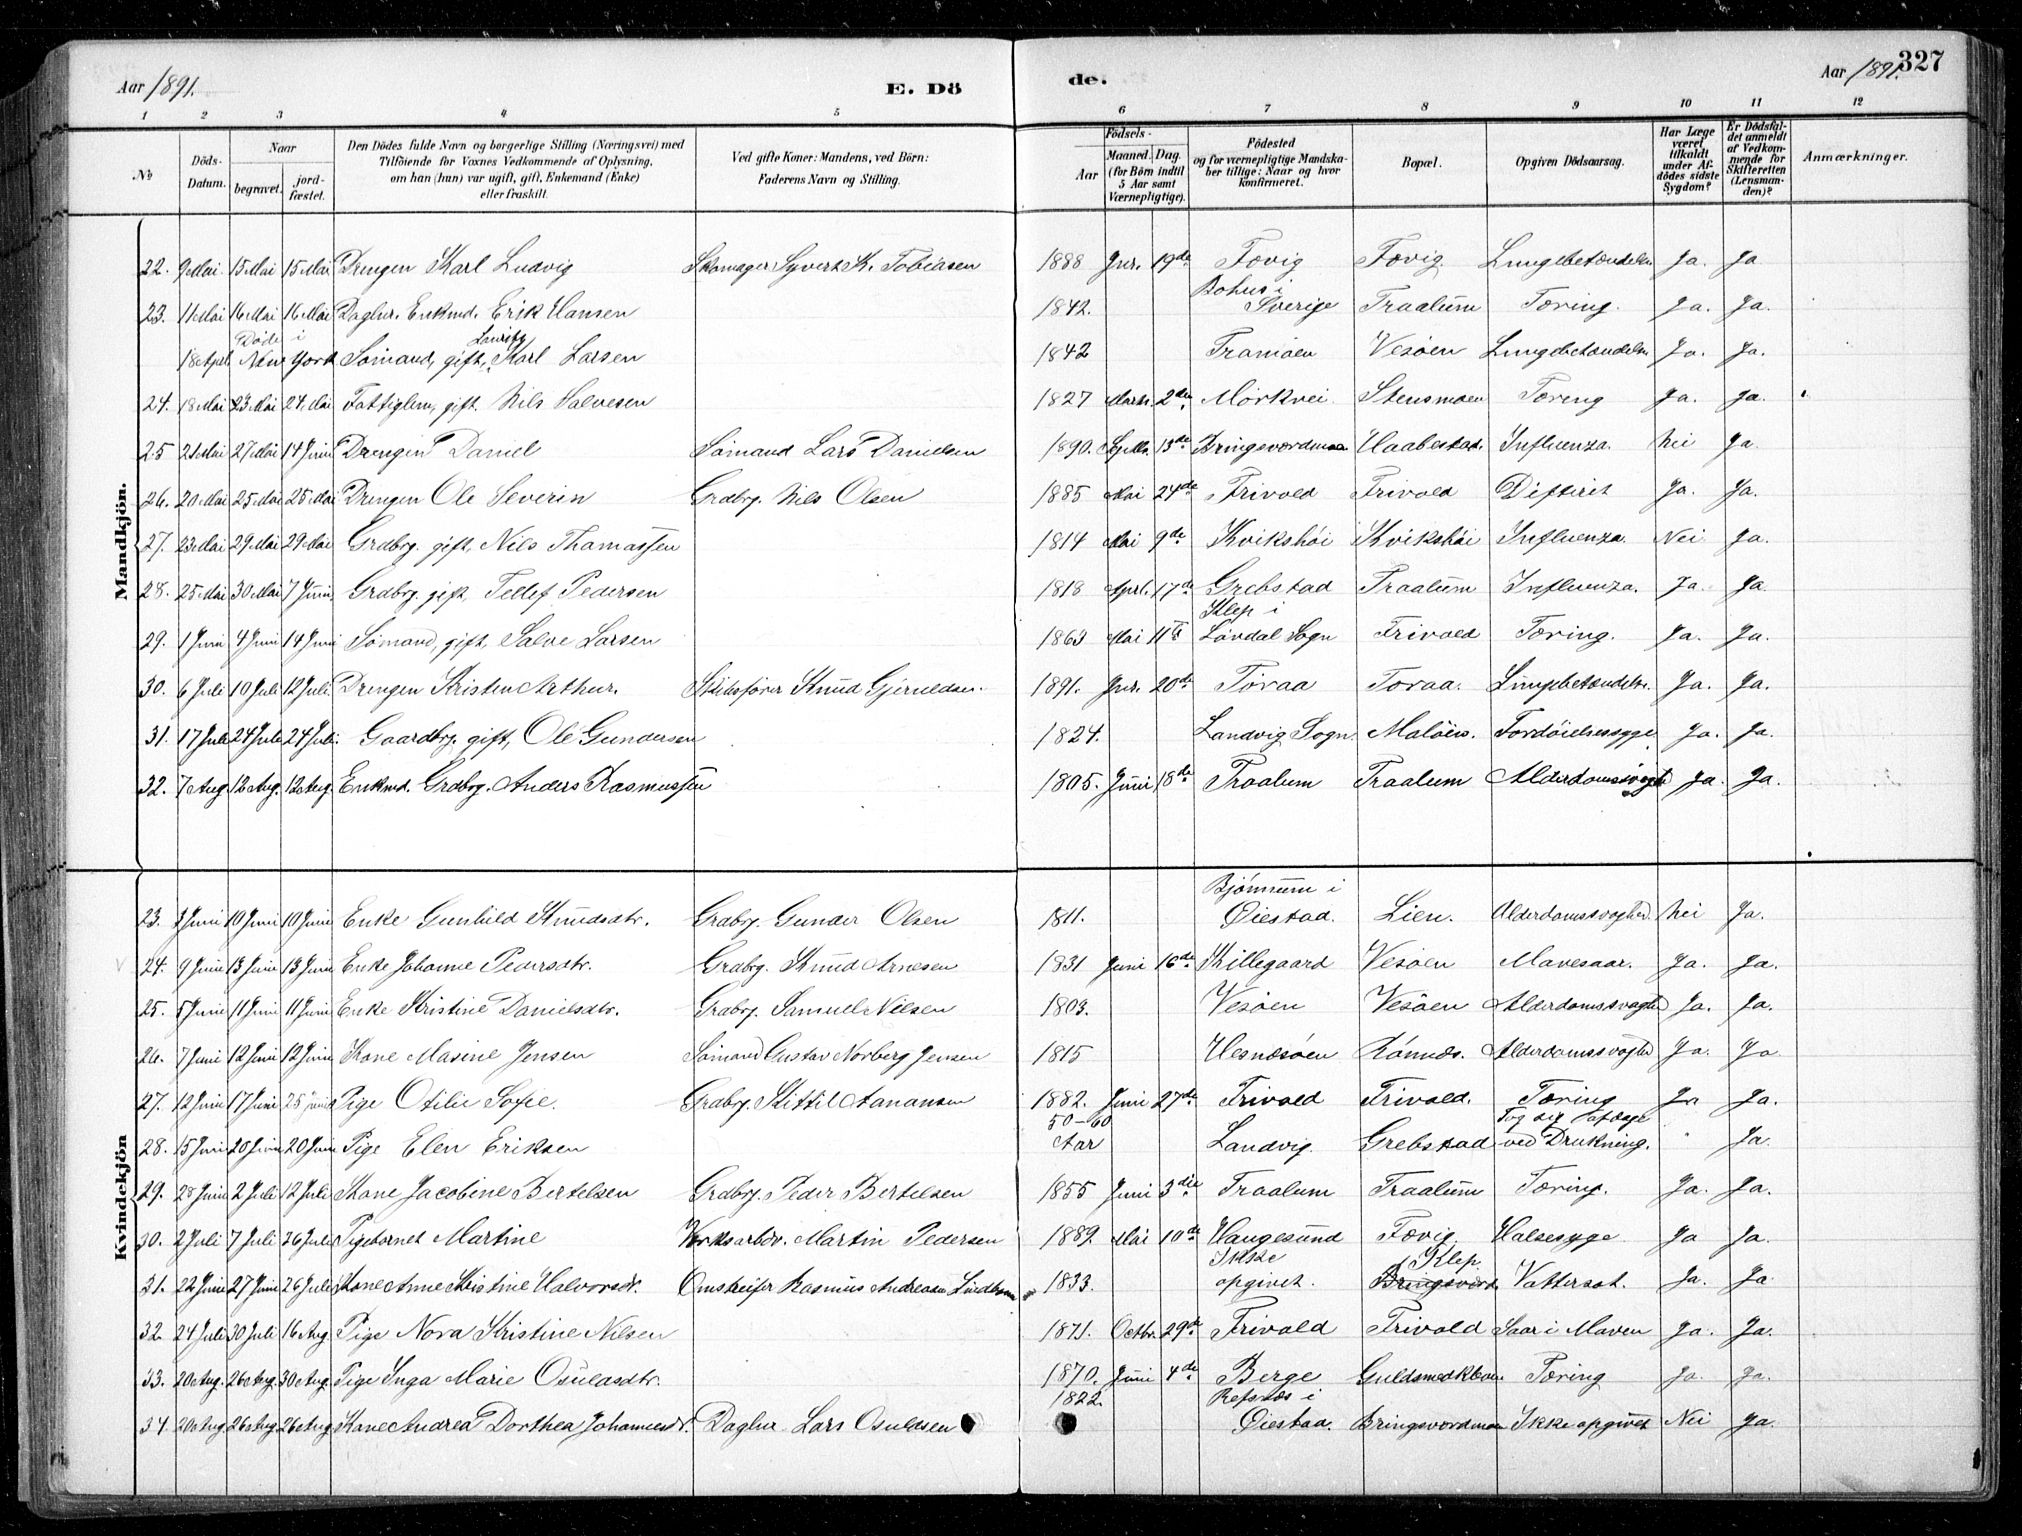 Aar 1891. E. Dö de. Aar 1891. 327
1 2 3 4 5 6 7 8 9 10 11 12
No Döds-Datum. Naar begravet. jord-fæstet. Den Dödes fulde Navn og borgerlige Stilling (Næringsvei) med Tilföiende for Voxnes Vedkommende af Oplysning, om han (hun) var ugift, gift, Enkemand (Enke) eller fraskilt. Ved gifte Koner: Mandens, ved Börn: Faderens Navn og Stilling. Födsels- Aar Maaned. Dag. (for Börn indtil 5 Aar samt Værnepligtige). Födested og for værnepligtige Mandskaber tillige: Naar og hvor konfirmeret. Bopæl. Opgiven Dödsaarsag. Har Læge været tilkaldt under Afdödes sidste Sygdom? Er Dödsfaldet anmeldt af Vedkommende for Skifteretten (Lensmanden)? Anmærkninger.
Mandkjön.
22. 9 Mai 15 Mai 15 Mai Drengen Karl Ludvig Skomager Syvert K. Tobiasen 1888 Jnr. 19de Fævig Fævig. Lungebetændelse Ja. Ja
23. 11 Mai 16 Mai 16 Mai Daglnr. Enkmd. Erik Hansen 1842. Bohus i Sverige Traalum Tæring. Ja. Ja.
18 April Døde i New York Sømand, gift, Karl Lauritz Larsen 1842 Tromøen Vesøen Lungebetændelse Ja. Ja.
24. 18 Mai 23 Mai 24. Mai Fattiglem, gift. Nils Salvesen 1827 Marts. 2den Mørkvei Stensmoen Tæring Ja. Ja.
25 21 Mai 27 Mai 14 Juni Drengen Daniel Sømand Lars Danielsen 1890. Septbr. 13de Bringsværdmoen Haabestad. Influenza. Nei Ja
26. 20 Mai 25 Mai 25 Mai Drengen Ole Severin Grdbrg. Nils Olsen 1885 Mai 24de Frivold Frivold Difterit Ja. Ja.
27. 23 Mai 29 Mai 29 Mai Grdbrg. gift, Nils Thomassen 1814 Mai 9de Kvikshøi Kvikshøi Influenza. Nei Ja.
28. 25 Mai 30 Mai 7 Juni Grdbrg. gift, Tellef Pedersen 1818 Aprl. 17de Grebstad Traalum Influenza. Ja. Ja
29. 1 Juni 4 Juni 14 Juni Sømand, gift, Salve Larsen 1863 Mai 11te Klep i Løvdal Sogn Frivold Tæring. Ja. Ja.
30. 6 Juli 10 Juli 12 Juli Drengen Kristen Arthur. Skibsfører Knud Gjeruldsen. 1891. Jnr. 20de Toraa Toraa. Lungebetændelse. Ja. Ja.
31. 17 Juli 24 Juli 24 Juli. Gaardbrg. gift, Ole Gundersen 1824. Landvig Sogn Maløen. Fordøielsessyge Ja. Ja.
32. 7 Aug. 12 Aug. 12 Aug. Enkmd. Grdbrg. Anders Rasmussen 1805. Juni 18de Traalum Traalum Alderdomssvaghed Ja. Ja.
Kvindekjön
23. Juni 10 Juni 10 Juni Enke Gunhild Knudsdtr. Grdbrg. Gunder Olsen 1811. Bjønnum i Øiestad. Lien. Alderdomssvaghed. Nei Ja.
24. 9 Juni 13 Juni 13 Juni Enke Johanne Pedersdtr. Grdbrg. Knud Arnesen 1831 Juni 16de Killegaard Vesøen Mavesaar. Ja. Ja.
25. 5 Juni 11 Juni 11 Juni Enke Kristine Danielsdtr. Grdbrg. Samuel Nilsen 1803. Vesøen Vesøen Alderdomssvaghed Ja. Ja.
26. 7 Juni 12 Juni 12 Juni Kone Maxine Jensen Sømand Gustav Norberg Jensen 1815 Hesnæsøen Rønnes. Alderdomssvaghed Ja. Ja
27. 12 Juni 17 Juni 25 Juni Pige Otilie Sofie. Grdbrg. Kittil Aanansen 1882. Juni 27de Frivold Frivold. Tæring Ja Ja.
28. 15 Juni 20 Juni 20 Juni Pige Elen Eriksen 50-60 Aar Landvig. Grebstad Tog sig afdage ved Drukning. " Ja
29. 28 Juni 2 Juli 12 Juli Kone Jacobine Bertelsen Grdbrg. Peder Bertelsen 1855 Juni 3die Traalum Traalum Tæring. Ja. Ja.
30. 2 Juli 7 Juli 26 Juli Pigebarnet Martine Værksarbdr. Martin Pedersen 1889. Mai 10de Haugesund Fævig. Halsesyge Ja Ja.
31. 22 Juni 27 Juni 26 Juli Kone Anne Kristine Halvorsdr. Omstreifer Rasmus Andreasen Lindboem 1833. Ikke opgivet. Bringsværd Klep. Vattersot. Ja. Ja
32. 24 Juli 30 Juli 16 Aug. Pige Nora Kristine Nilsen 1871. Octbr. 29de Frivold Frivold Saar i Maven Ja. Ja.
33. 20 Aug. 26 Aug. 30 Aug. Pige Inga Marie Osuldsdtr. 1870. Juni 4de Berge Guldsmedkleven Tæring Ja. Ja.
34. 20 Aug 26 Aug 26 Aug Kone Andrea Dorthea Johannesdr. Daglnr Lars Osuldsen 1822. Refsnæs i Øiestad. Bringsværdmoen Ikke opgivet Nei Ja.